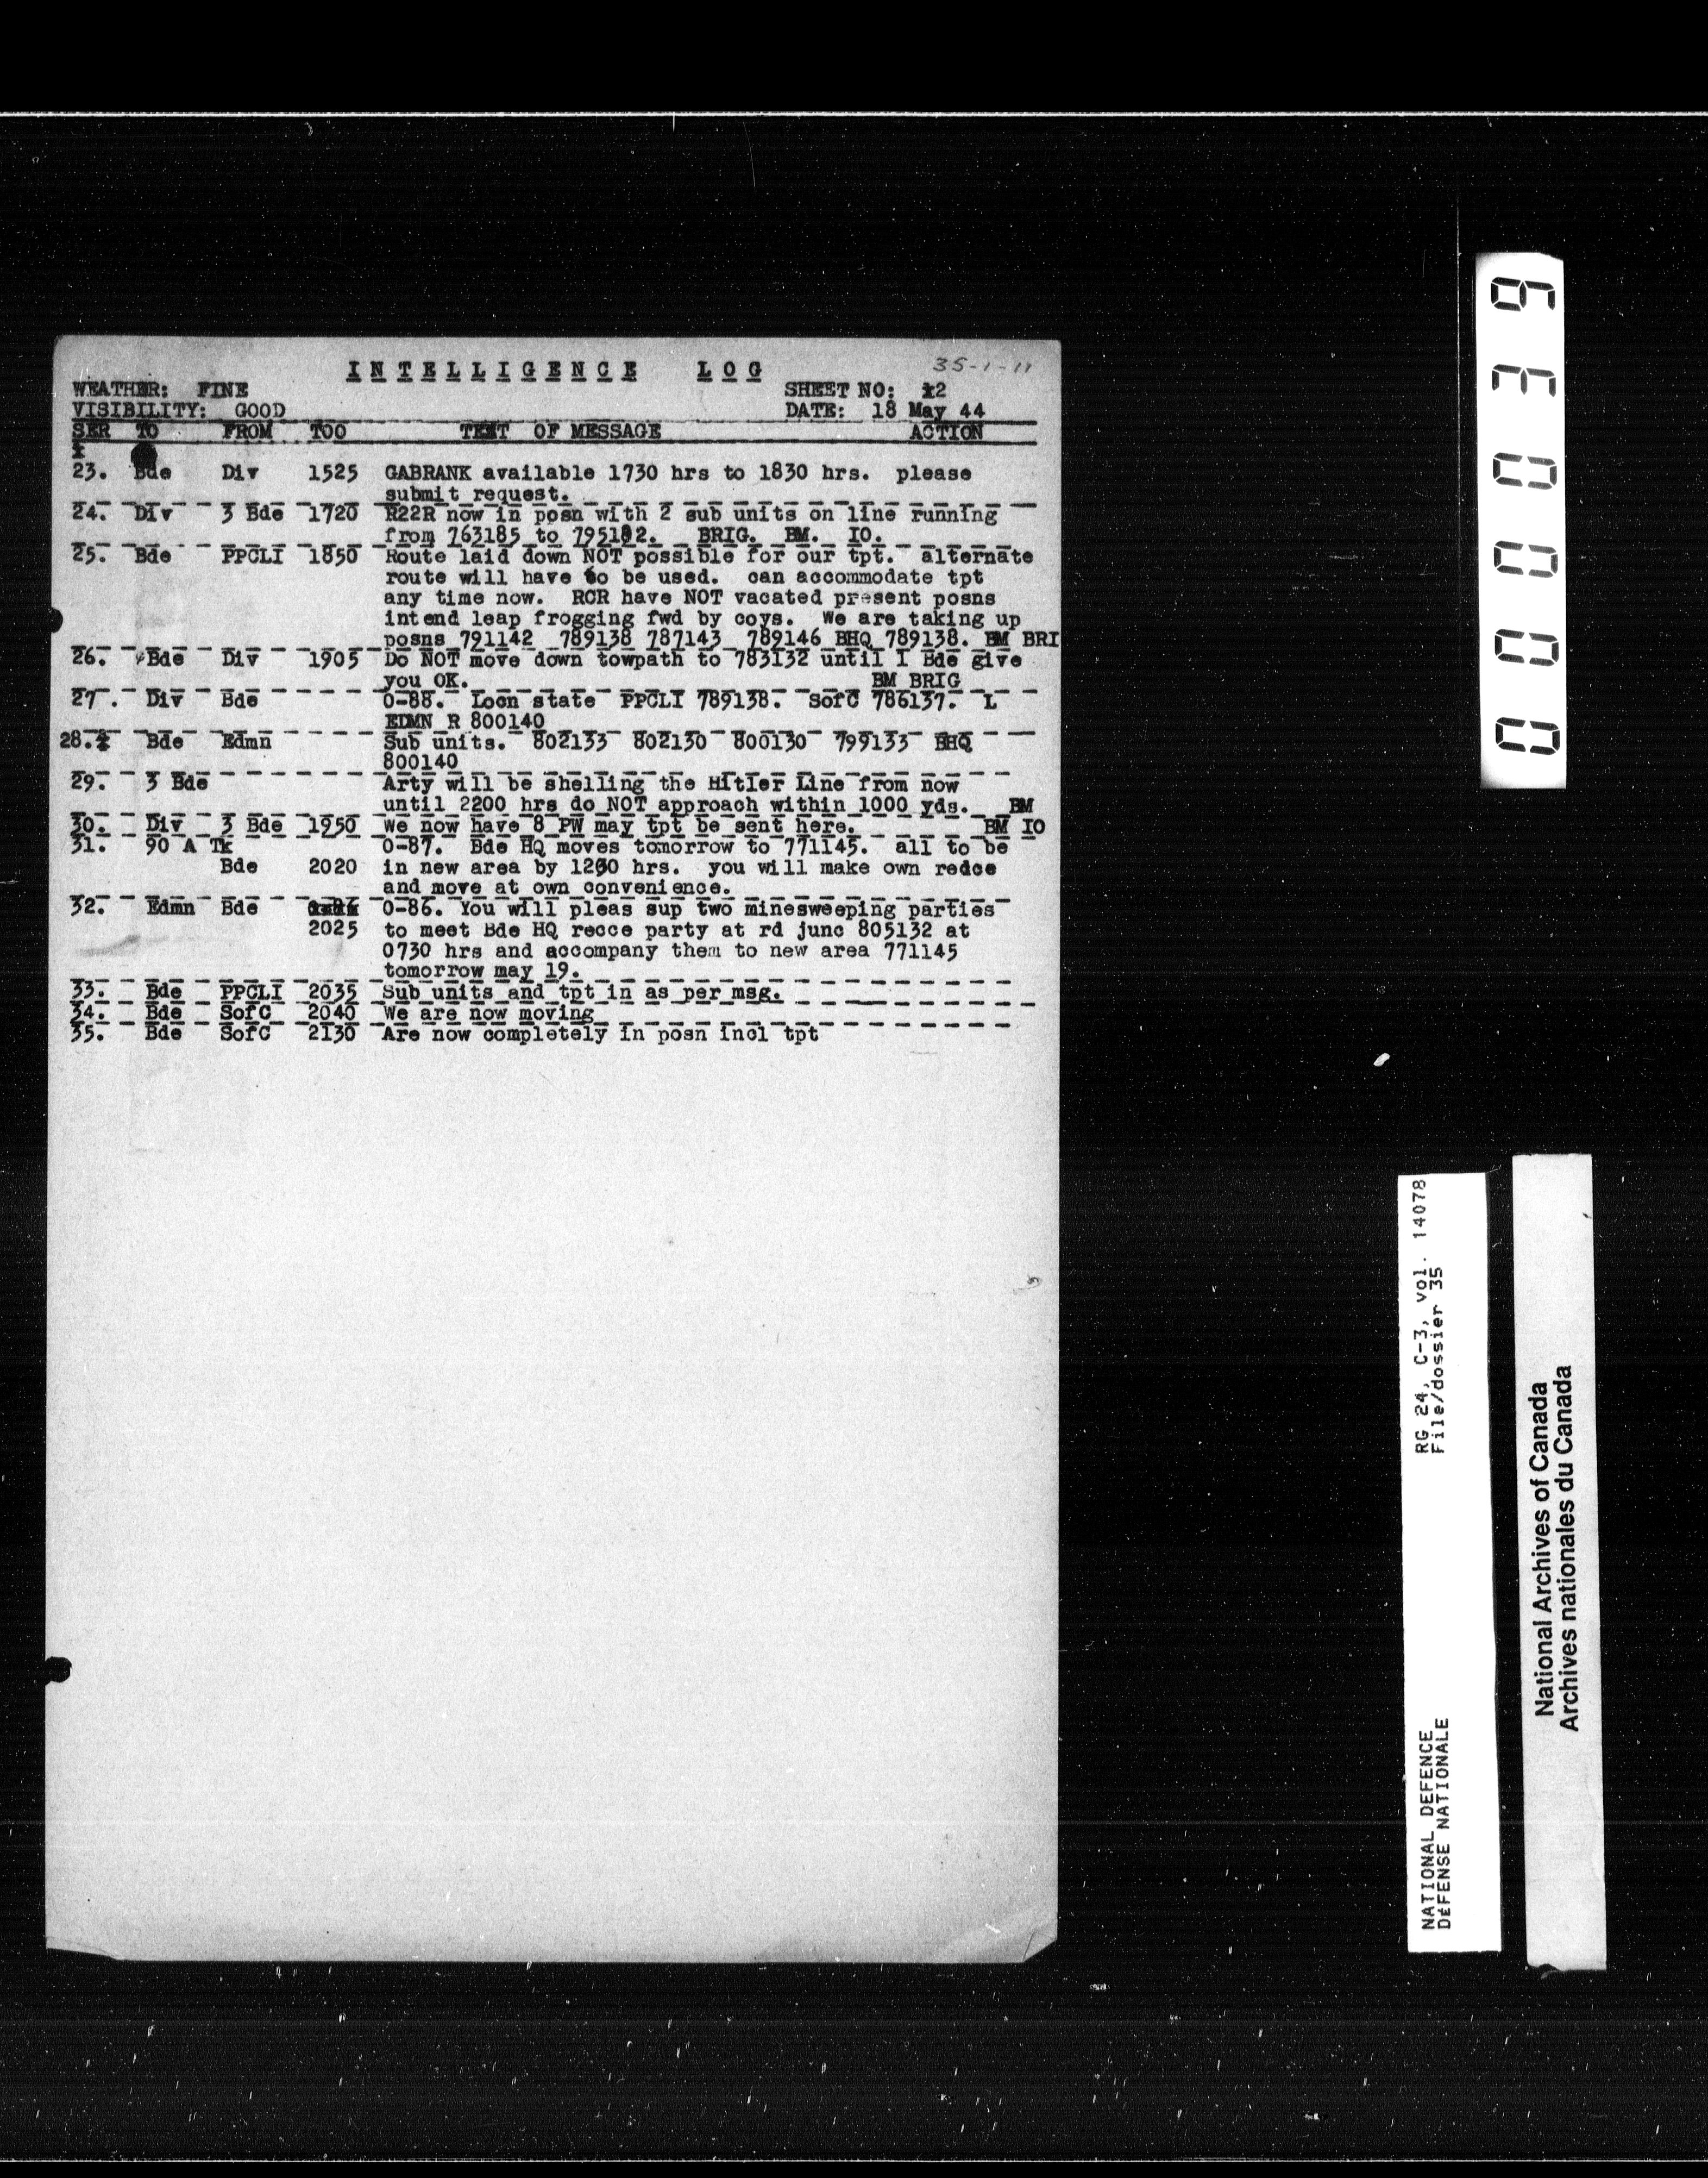 35-1-11
INTELLIGENCE LOG
WEATHER: FINE SHEET NO: 12
VISIBILITY: GOOD DATE: 18 May 44
SER TO FROM TOO TEXT OF MESSAGE ACTION
23. Bde Div 1525 GABRANK available 1730 hrs to 1830 hrs. please
submit request.
24. Div 3 Bde 1720 R22R now in posn with 2 sub units on line running
from 763185 to 795182. BRIG. BM. IO.
25. Bde PPCLI 1850 Route laid down NOT possible for our tpt. alternate
route will have to be used. can accommodate tpt
any time now. RCR have NOT vacated present posns
intend leap frogging fwd by coys. We are taking up
posns 791142 789138 787143 789146 BHQ 789138. BM BRI
26. Bde Div 1905 Do NOT move down towpath to 783132 until I Bde give
you OK. BM BRIG
27. Div Bde 0-88. Locn state PPCLI 789138. SofC 786137. L
EDMN R 800140
28. Bde Edmn Sub units. 802133 802130 800130 799133 BHQ
800140
29. 3 Bde Arty will be shelling the Hitler Line from now
until 2200 hrs do NOT approach within 1000 yds. BM
30. Div 3 Bde 1950 We now have 8 PW may tpt be sent here. BM IO
31. 90 A Tk 0-87. Bde HQ moves tomorrow to 771145. all to be
Bde 2020 in new area by 1200 hrs. you will make own redce
and move at own convenience.
32. Edmn Bde 0-86. You will pleas sup two minesweeping parties
2025 to meet Bde HQ recce party at rd junc 805132 at
0730 hrs and accompany them to new area 771145
tomorrow may 19.
33. Bde PPCLI 2035 Sub units and tpt in as per msg.
34. Bde SofC 2040 We are now moving
35. Bde SofC 2130 Are now completely in posn incl tpt
000039
RG 24, C-3, vol. 14078
File/dossier 35
NATIONAL DEFENCE
DÉFENSE NATIONALE
National Archives of Canada
Archives nationales du Canada